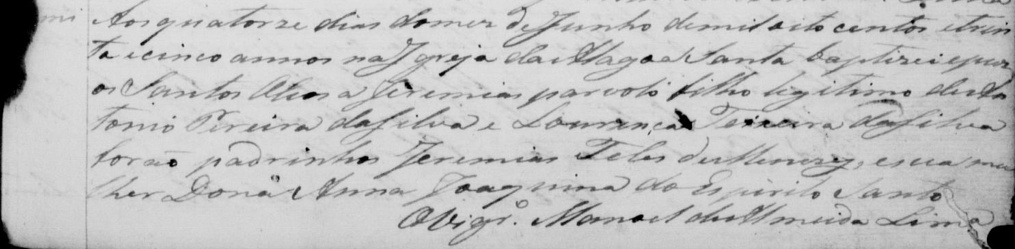 Aos quatorze dias do mez de Junho de mil oito centos e trin
ta e cinco annos na Igreja da Alagoa Santa baptizei e puz
os Santos Oleos a Jeremias parvolo filho legitimo de An
tonio Pereira da Silva e Lourença Teixeira da Silva
forão padrinhos Jeremias Teles de Menezes, e sua mu
lher Dona Anna Joaquina do Espirito Santo
O Vigr.º Manoel de Almeida Lima